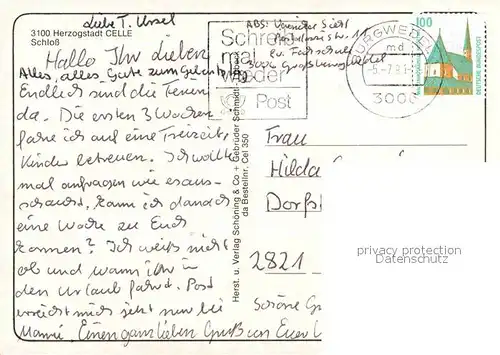 Liebe T. Ursel
3100 Herzogstadt CELLE
Schloß
Hallo Ihr Lieben
Alles, alles Gute zum Geburtstag
Endlich sind die Ferien
da. Die ersten 3 Wochen
fahre ich auf eine Freizeit,
Kinder betreuen. Ich wollte
mal anfragen wie es aus-
schaut, kann ich danach
eine Woche zu Euch
kommen? Ich weiß nicht
ob und wann ihr in
den Urlaub fahrt. Post
erreicht mich jetzt nur bei
Mami. Einen ganz lieben Gruß an Euer
Herst. u. Verlag Schöning & Co + Gebrüder Schmidt
da Bestellnr. Cel 350
Schreib
mal
wieder
Post
ABS:
3006 Großburgwedel
BURGWEDEL
md
3006
100
DEUTSCHE BUNDESPOST
Frau
Hilda
Dorfst
2821
Schöne Gr
privacy protection
Datenschutz